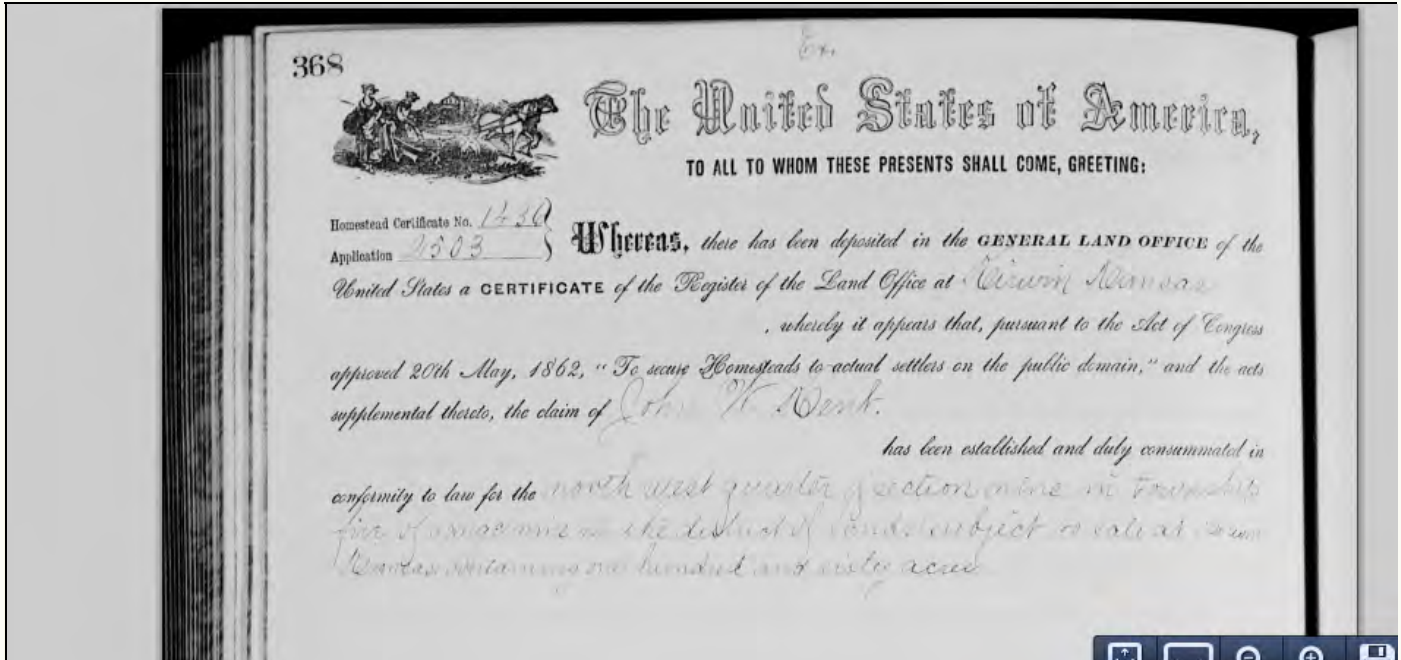 368
Ex.
The United States of America,
TO ALL TO WHOM THESE PRESENTS SHALL COME, GREETING:
Homestead Certificate No. 1436
Application 4503
Whereas, there has been deposited in the GENERAL LAND OFFICE of the
United States a CERTIFICATE of the Register of the Land Office at Kirwin Kansas
, whereby it appears that, pursuant to the Act of Congress
approved 20th May, 1862, "To secure Homesteads to actual settlers on the public domain," and the acts
supplemental thereto, the claim of John W. Kenk.
has been established and duly consummated in
conformity to law for the north west quarter of section nine in Township
five of range nine in the district of lands subject to sale at Kirwin
Kansas containing one hundred and sixty acres